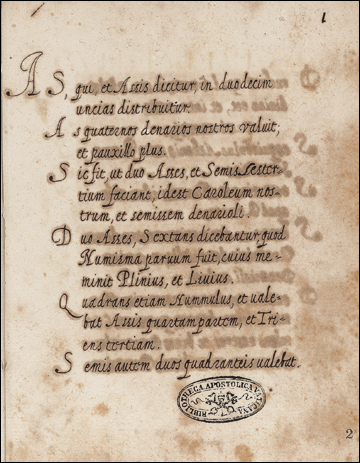 1
AS, qui, et Assis dicitur, in duodecim
uncias distribuitur.
As quaternos denarios nostros valuit,
et pauxillo plus.
Sic fit, ut duo Asses, et Semis sester-
tium faciant, idest Caroleum nos-
trum, et semissem denarioli.
Duo Asses, Sextans dicebantur, quod
Numisma paruum fuit, cuius me-
minit Plinius, et Liuius.
Quadrans etiam Nummulus, et uale-
bat Assis quartam partem, et Tri-
ens tertiam.
Semis autem duos quadranteis ualebat.
BIBLIOTHECA APOSTOLICA VATICANA
2